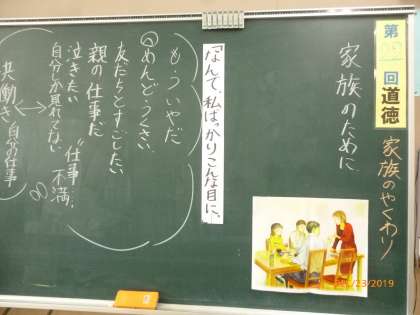 第
回
道徳
家族のやくわり
家族のために
「なんて、私ばっかりこんな目に。」
も・ういやだ
めんど・うさい
友だちとすごしたい
親の仕事だ
泣きたい
自分しか見れてない
仕事
不満
共働き
自分の仕事
23/2019